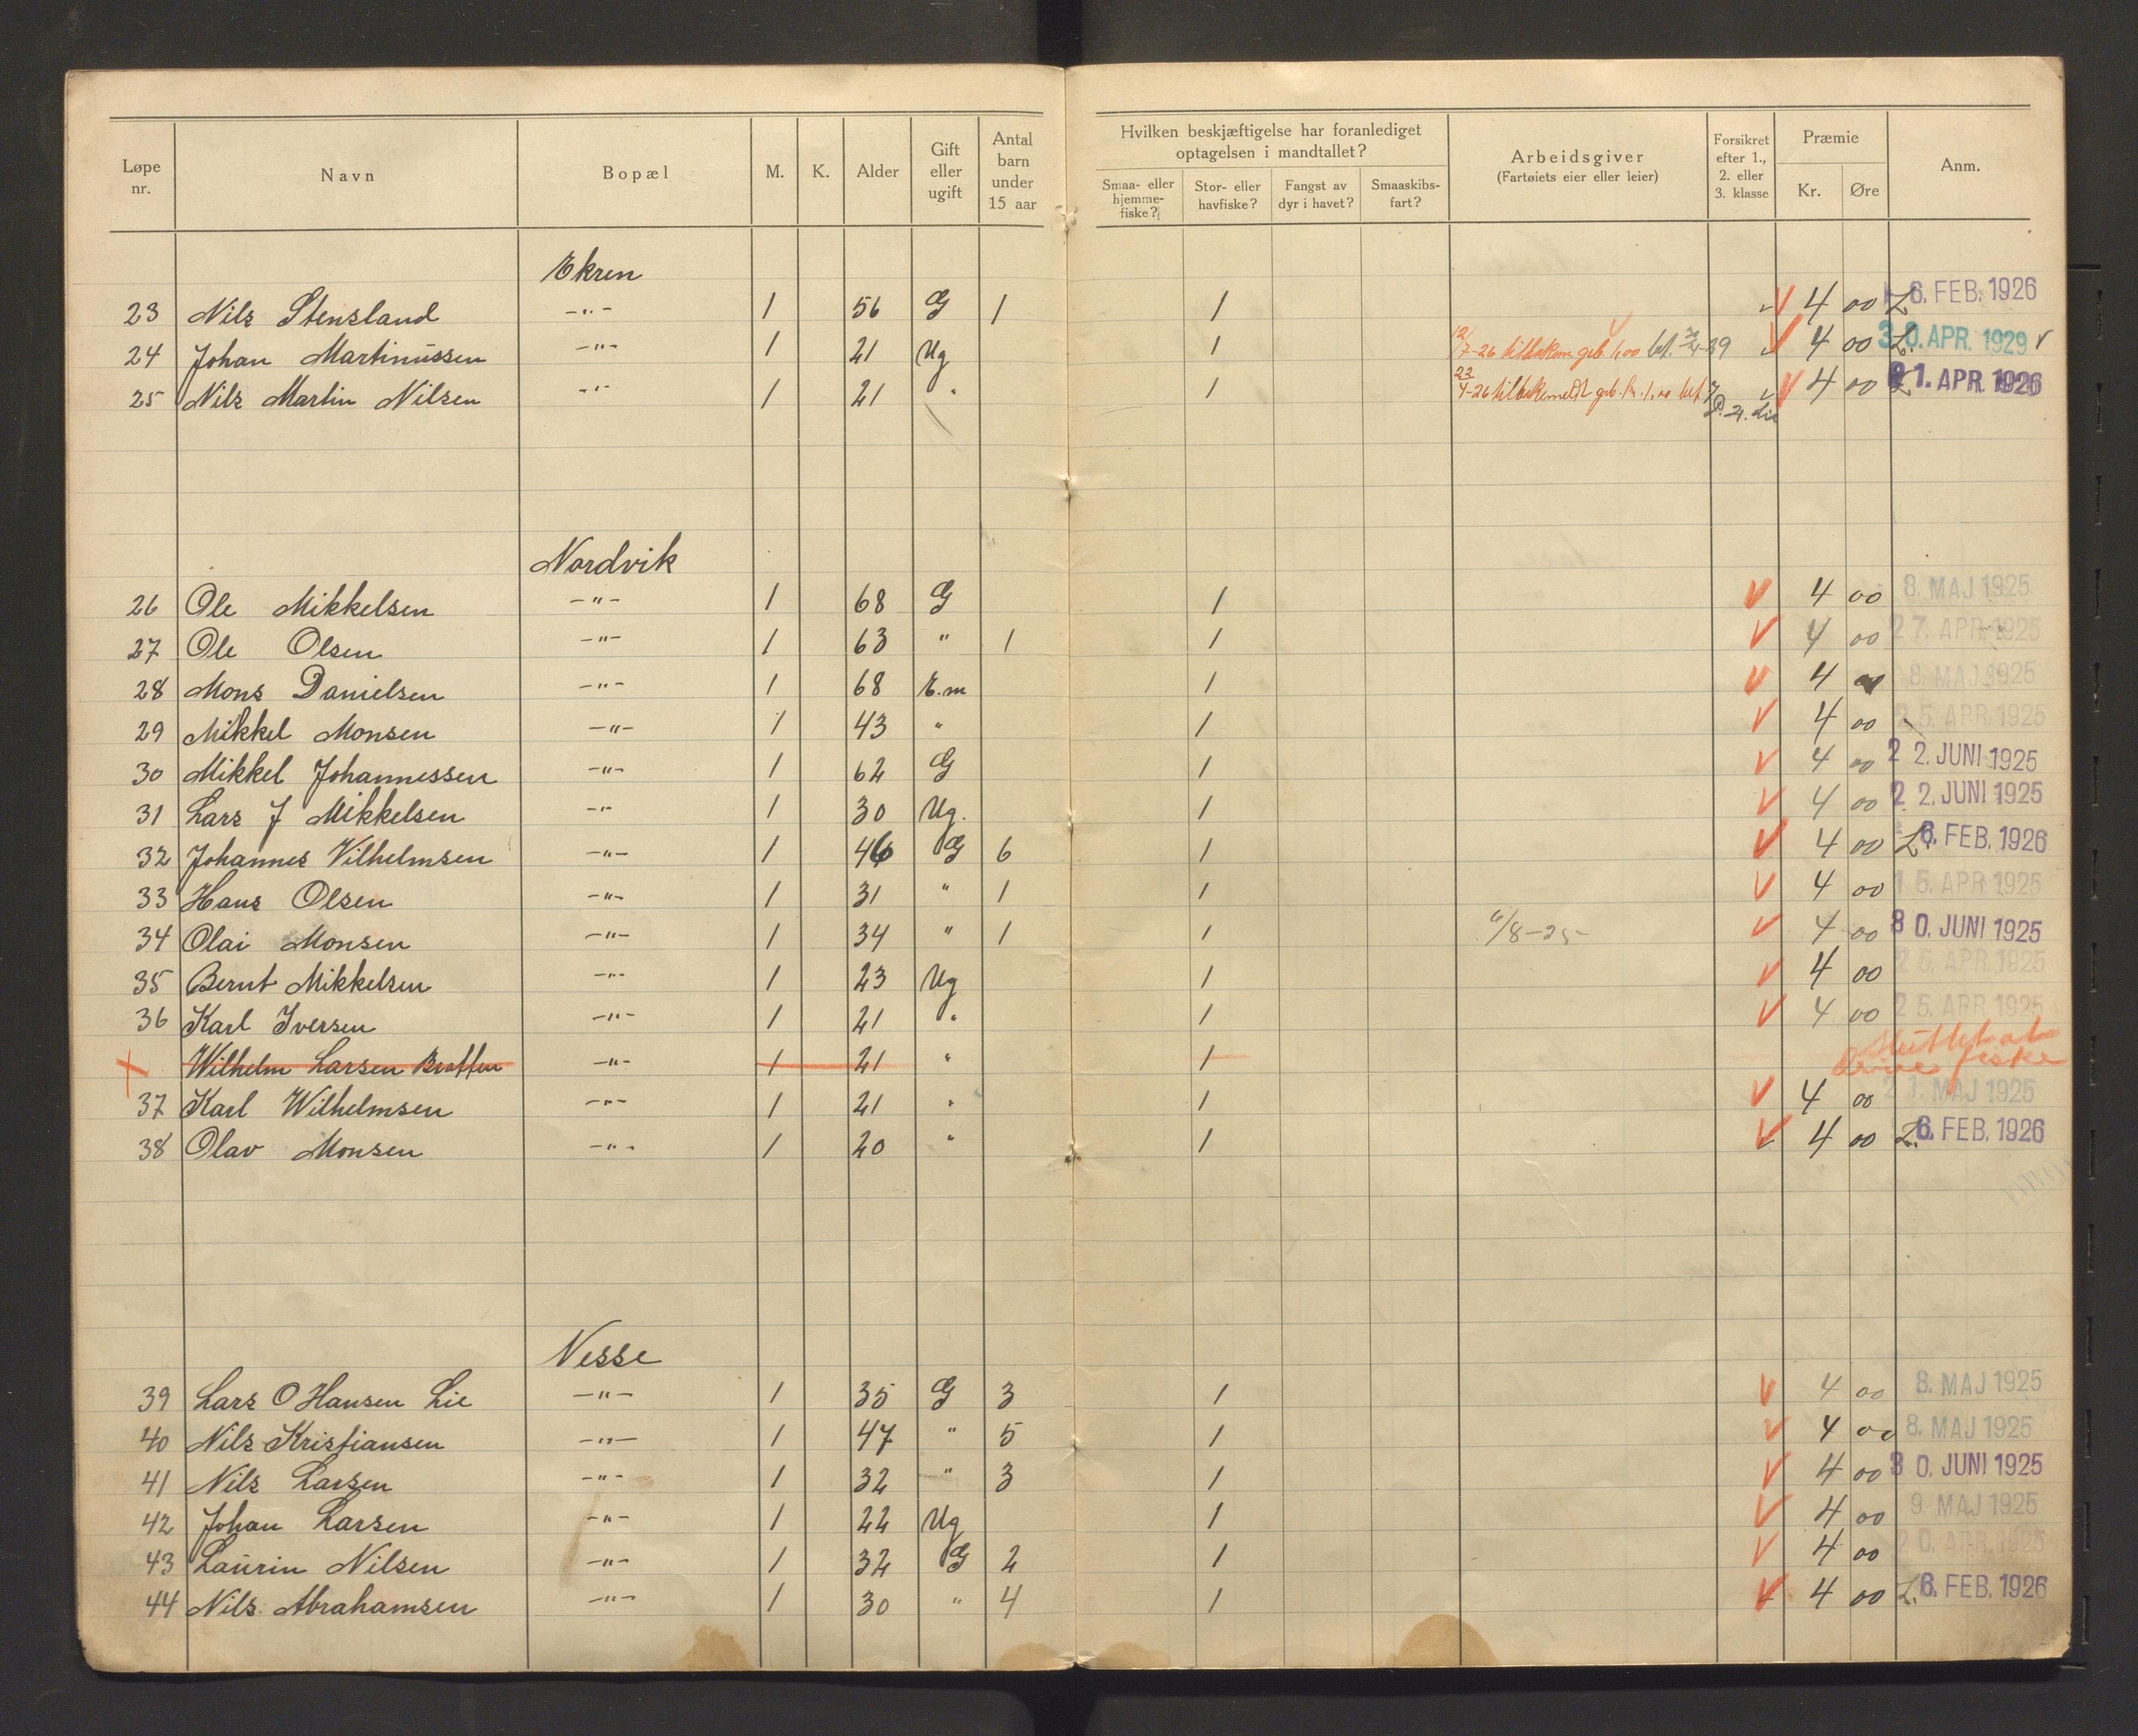 Løpe nr. Navn Bopæl M. K. Alder Gift eller ugift Antal barn under 15 aar Hvilken beskjæftigelse har foranlediget optagelsen i mandtallet? Smaa- eller hjemme-fiske? Stor- eller havfiske? Fangst av dyr i havet? Smaaskibs-fart? Arbeidsgiver (Fartøiets eier eller leier) Forsikret efter 1., 2. eller 3. klasse Præmie Kr. Øre Anm.
Ekren
23 Nils Stensland -"- 1 56 G 1 1 4 00 L 6. FEB. 1926
24 Johan Martinussen -"- 1 21 Ug 1 12/7-26 4 00 L. 30. APR. 1929
25 Nils Martin Nilsen -"- 1 21 " 1 23/4-26 tilbakemeldt geb. kr. 1,00 bet 4 00 21. APR. 1926
Nordvik
26 Ole Mikkelsen -"- 1 68 G 1 4 00 8. MAJ 1925
27 Ole Olsen -"- 1 63 " 1 1 4 00 27. APR 1925
28 Mons Danielsen -"- 1 68 E.m 1 4 00 8. MAJ 1925
29 Mikkel Monsen -"- 1 43 " 1 4 00 25. APR 1925
30 Mikkel Johannessen -"- 1 62 G 1 4 00 22. JUNI 1925
31 Lars J Mikkelsen -"- 1 30 Ug. 1 4 00 22. JUNI 1925
32 Johannes Vilhelmsen -"- 1 46 G 6 1 4 00 L. 6. FEB. 1926
33 Hans Olsen -"- 1 31 " 1 1 4 00 15. APR 1925
34 Olai Monsen -"- 1 34 " 1 1 6/8-25- 4 00 30. JUNI 1925
35 Bernt Mikkelsen -"- 1 23 Ug 1 4 00 25. APR 1925
36 Karl Iversen -"- 1 21 " 1 4 00 25. APR 1925
Wilhelm Larsen Bratten -"- 1 21 " 1 Sluttet at drive fiske
37 Karl Wilhelmsen -"- 1 21 " 1 4 00 21. MAJ 1925
38 Olav Monsen -"- 1 20 " 1 4 00 L. 6. FEB. 1926
Nesse
39 Lars O Hansen Lie -"- 1 35 G 3 1 4 00 8. MAJ 1925
40 Nils Kristiansen -"- 1 47 " 5 1 4 00 8. MAJ 1925
41 Nils Larsen -"- 1 32 " 3 1 4 00 30. JUNI 1925
42 Johan Larsen -"- 1 22 Ug 1 4 00 9. MAJ 1925
43 Laurin Nilsen -"- 1 32 G 2 1 4 00 20. APR. 1925
44 Nils Abrahamsen -"- 1 30 " 4 1 4 00 L. 6. FEB. 1926